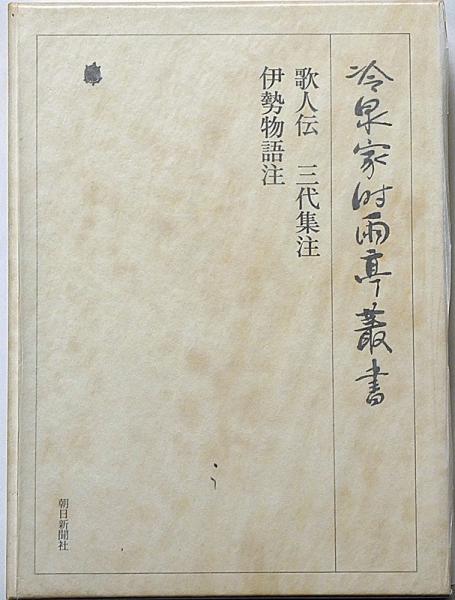 冷泉家时雨亭叢書
歌人伝 三代集注
伊勢物語注
朝日新聞社